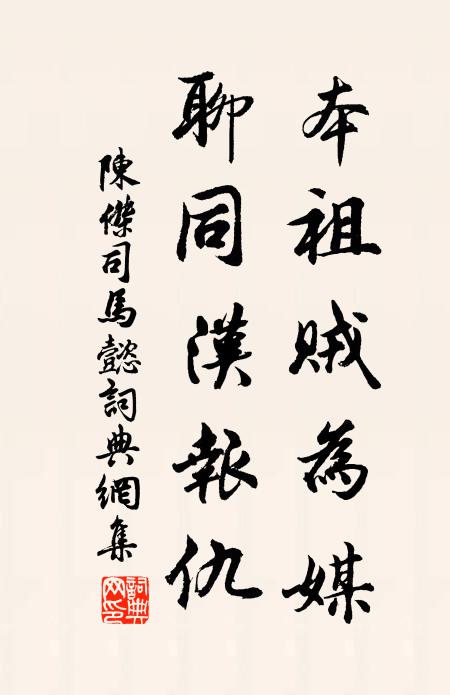 本祖賊為媒
聊同漢報仇
陳傑司馬懿詞典網集
詞典網印